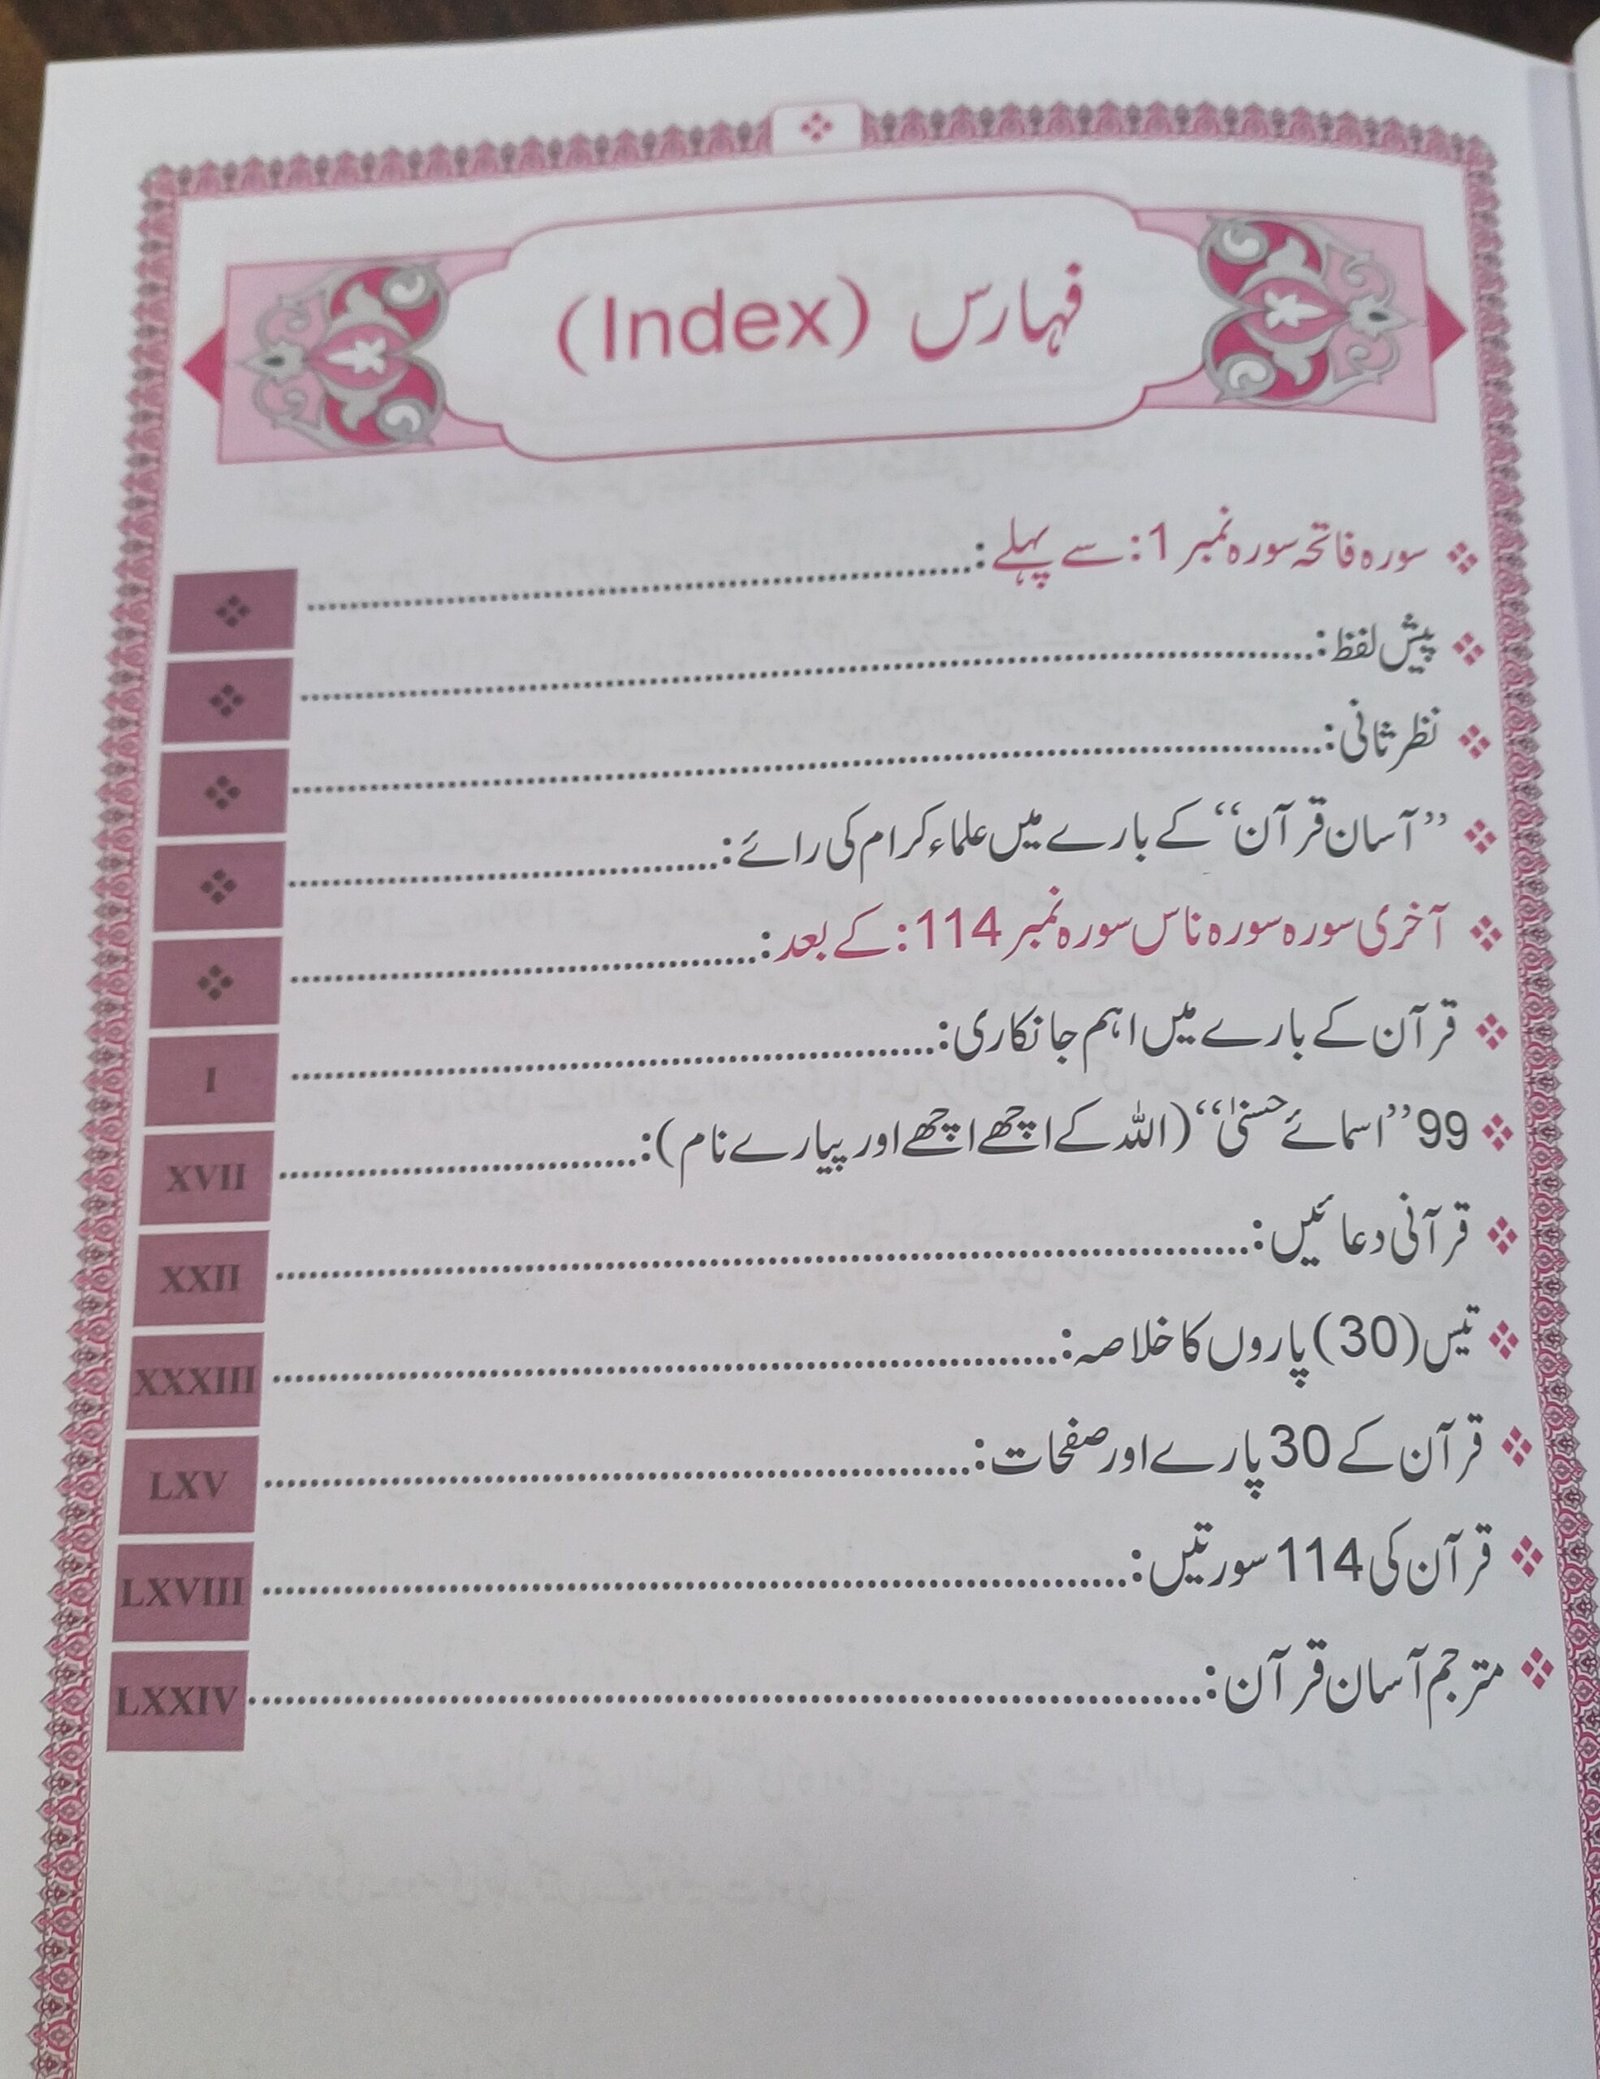 فہارس (Index)
سورہ فاتحہ سورہ نمبر 1: سے پہلے:
پیش لفظ:
نظر ثانی:
’’آسان قرآن‘‘ کے بارے میں علماء کرام کی رائے:
آخری سورہ سورہ ناس سورہ نمبر 114: کے بعد:
قرآن کے بارے میں اہم جانکاری: I
99 ’’اسمائے حسنیٰ‘‘ (اللہ کے اچھے اچھے اور پیارے نام): XVII
قرآنی دعائیں: XXII
تیس (30) پاروں کا خلاصہ: XXXIII
قرآن کے 30 پارے اور صفحات: LXV
قرآن کی 114 سورتیں: LXVIII
مترجم آسان قرآن: LXXIV